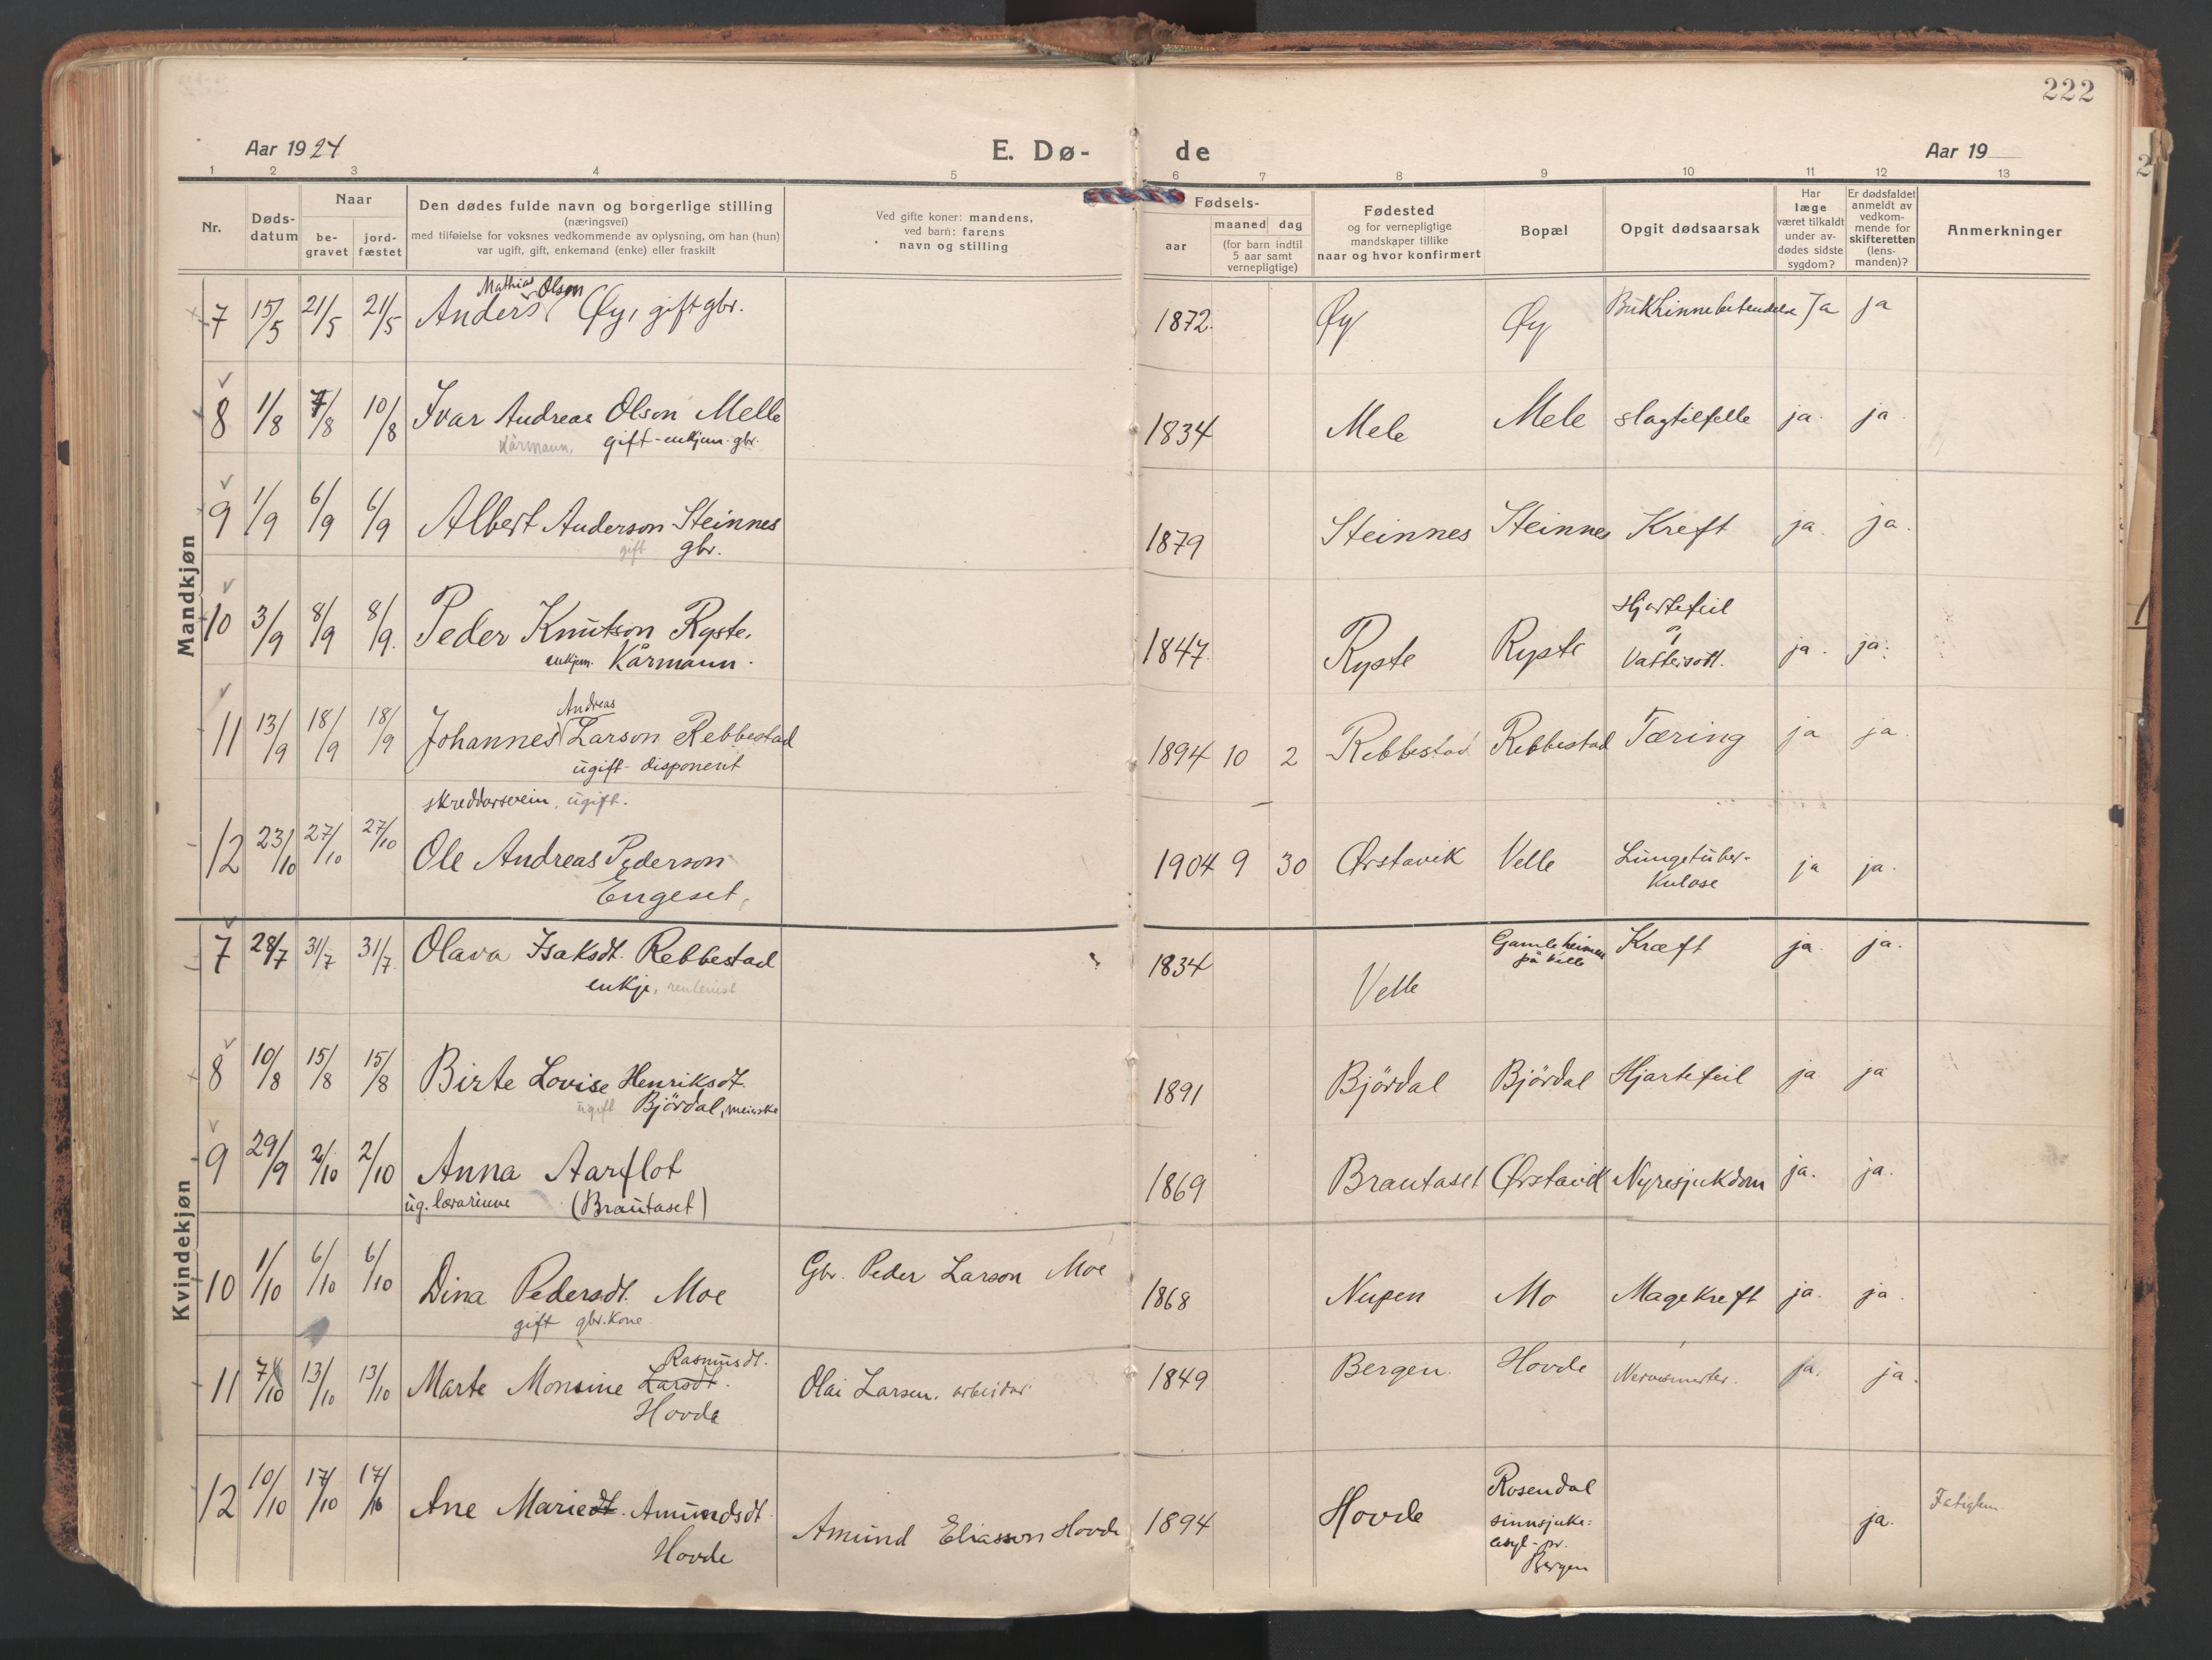 222
Aar 1924
E. Dø-
de
Aar 19
1 2 3 4 5 6 7 8 9 10 11 12 13
Nr.
Døds-
datum
Naar
be-
gravet
jord-
fæstet
Den dødes fulde navn og borgerlige stilling
(næringsvei)
med tilføielse for voksnes vedkommende av oplysning, om han (hun)
var ugift, gift, enkemand (enke) eller fraskilt
Ved gifte koner: mandens,
ved barn: farens
navn og stilling
Fødsels-
aar
maaned dag
(for barn indtil
5 aar samt
vernepligtige)
Fødested
og for vernepligtige
mandskaper tillike
naar og hvor konfirmert
Bopæl
Opgit dødsaarsak
Har
læge
været tilkaldt
under av-
dødes sidste
sygdom?
Er dødsfaldet
anmeldt av
vedkom-
mende for
skifteretten
(lens-
manden)?
Anmerkninger
Mandkjøn
Mathias Olson
7 15/5 21/5 21/5 Anders Øy, gift gbr. 1872. Øy Øy Bukhinnebetendelse Ja ja
8 1/8 7/8 10/8 Ivar Andreas Olson Melle 1834 Mele Mele slagtilfelle ja. ja
kårmann, gift - enkjem. gbr.
9 1/9 6/9 6/9 Albert Anderson Steinnes 1879 Steinnes Steinnes Kreft ja. ja.
gift gbr.
10 3/9 8/9 8/9. Peder Knutson Ryste, 1847. Ryste Ryste Hjartefeil
enkjem. Kårmann. Vattersott. ja. ja.
Andreas
11 13/9 18/9 18/9 Johannes Larson Rebbestad 1894 10 2 Rebbestad Rebbestad Tæring ja ja.
ugift - disponent
skreddarsvein, ugift.
12 23/10 27/10 27/10 Ole Andreas Pederson 1904 9 30 Ørstavik Velle Lungetuber-
kulose ja ja.
Engeset,
Kvindekjøn
7 28/7 31/7 31/7. Olava Isaksdt. Rebbestad 1834 Velle Gamleheimen
på Velle Kræft ja. ja.
enkje, rentenist
8 10/8 15/8 15/8 Birte Lovise Henriksdt. 1891 Björdal Björdal Hjartefeil ja ja
ugift Björdal, meierske
9 29/9 2/10 2/10 Anna Aarflot 1869 Brautaset Ørstavik Nyresjukdom ja. ja.
ug. lærarinne (Brautaset)
10 1/10 6/10 6/10 Dina Pedersdt. Moe Gbr. Peder Larson Moe 1868 Nupen Mo Magekreft ja. ja.
gift gbr. kone
Rasmusdt.
11 7/10 13/10 13/10 Marte Monsine Larsdt. Olai Larsen. arbeidar 1849 Bergen. Hovde ja. ja.
Hovde
12 10/10 17/10 17/10 Ane Mariedt. Amundsdt. Amund Eliasson Hovde 1894 Hovde Rosendal
sinnsjuke=
asyl - pr.
Bergen ja.
Hovde